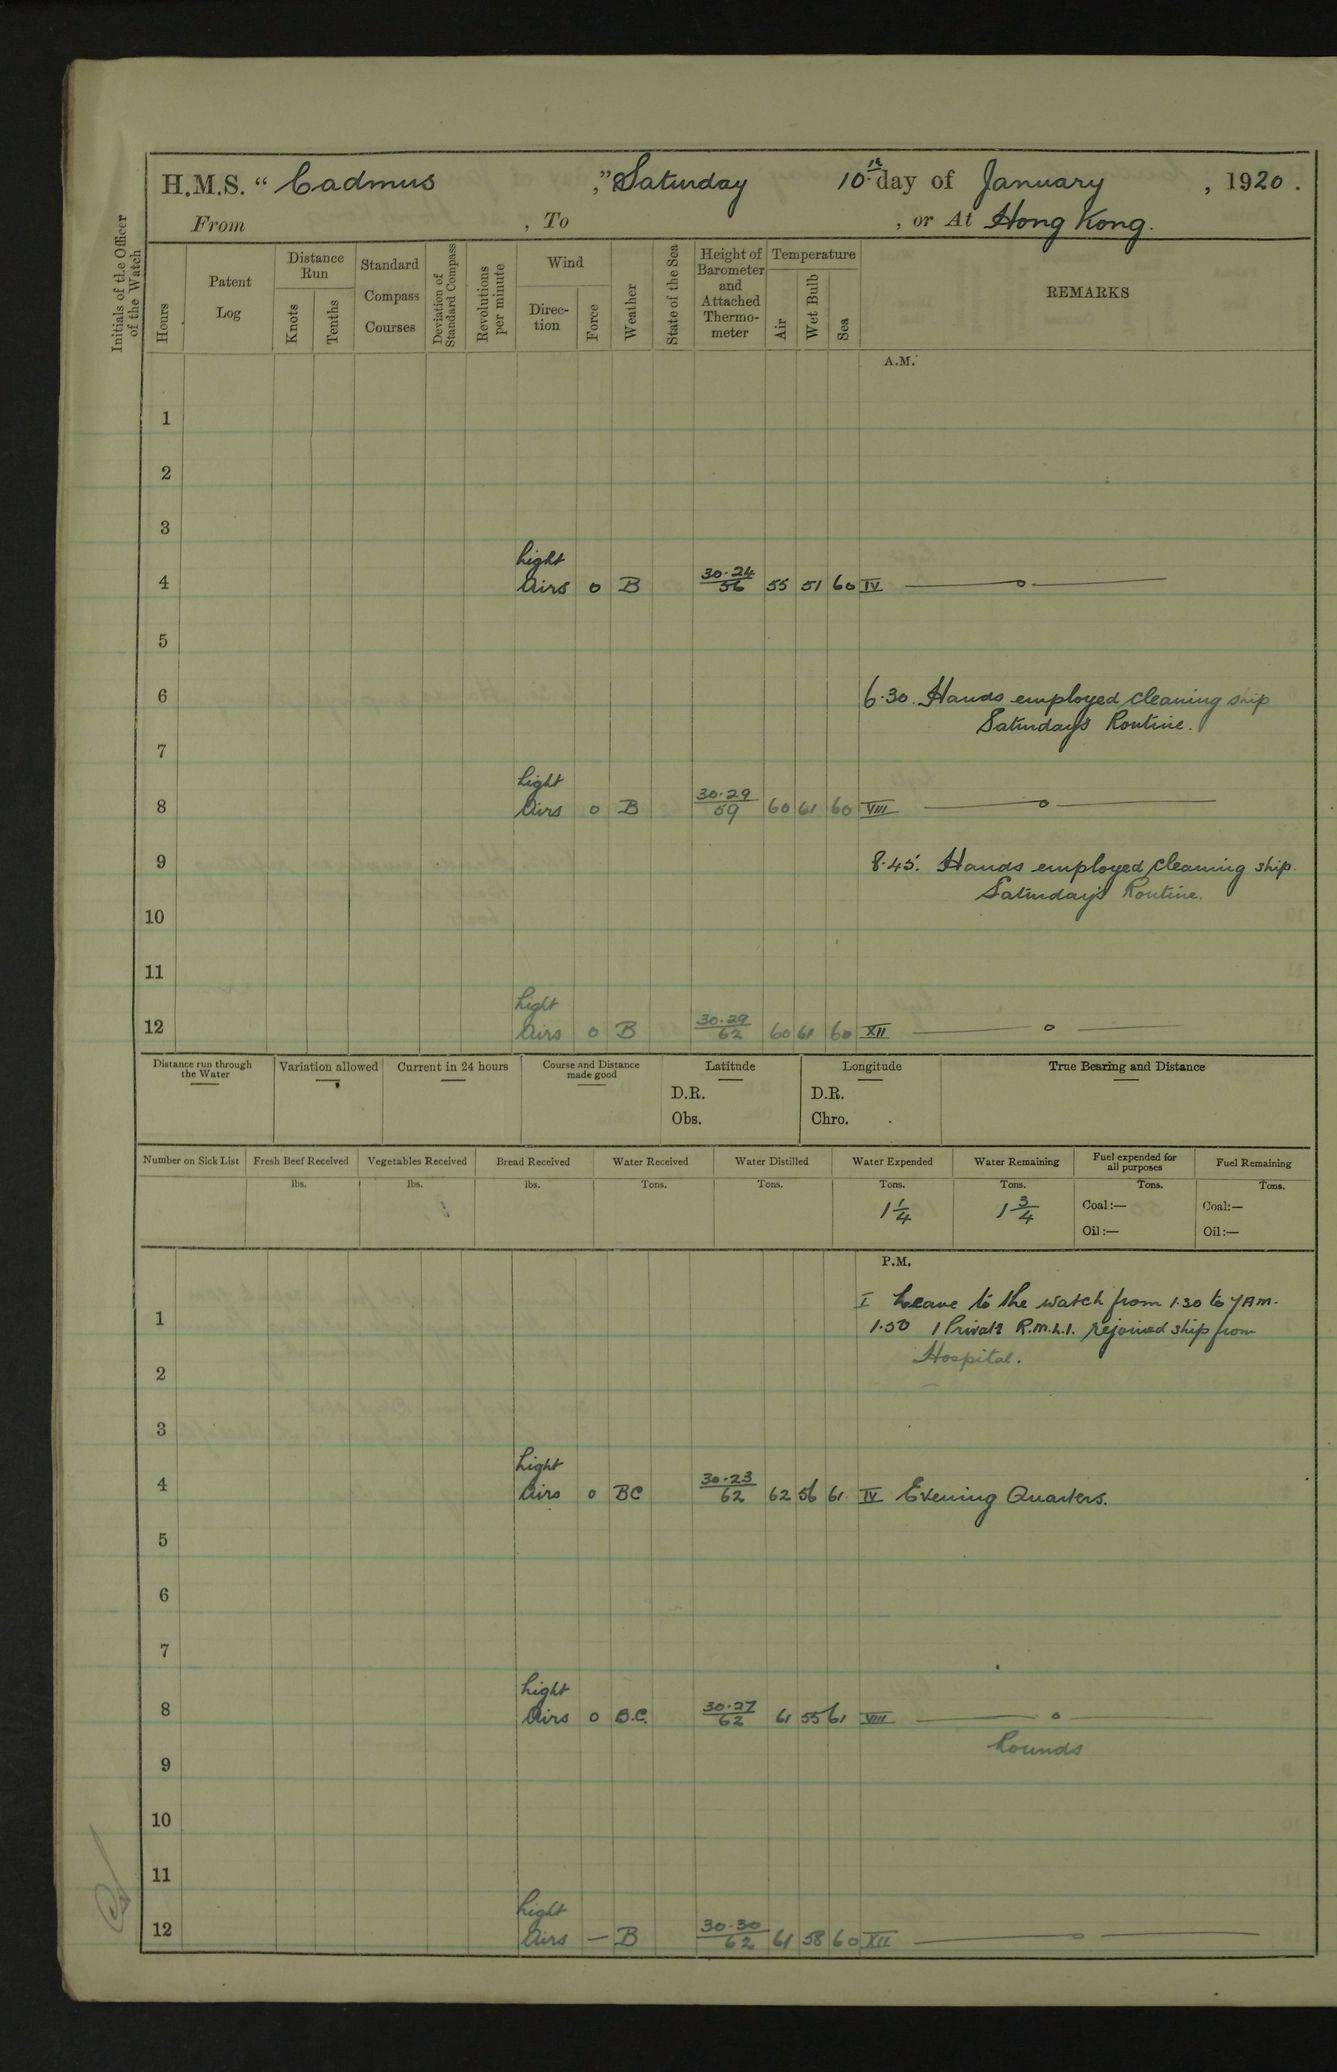 H.M.S. “ Cadmus ,” Saturday 10th day of January , 1920 .
From , To , or At Hong Kong.
Initials of the Officer of the Watch
Hours
Patent Log
Distance Run
Knots
Tenths
Standard Compass Courses
Deviation of Standard Compass
Revolutions per minute
Wind
Direc-tion
Force
Weather
State of the Sea
Height of Barometer and Attached Thermo-meter
Temperature
Air
Wet Bulb
Sea
REMARKS
A.M.
1
2
3
Light
4 Airs 0 B 30.24/56 55 51 60 IV —— o ——
5
6 6.30. Hands employed cleaning ship
Saturday's Routine.
7
Light
8 Airs 0 B 30.29/59 60 61 60 VIII —— o ——
9 8.45. Hands employed cleaning ship.
Saturday's Routine.
10
11
Light
12 Airs 0 B 30.29/62 60 61 60 XII —— o ——
Distance run through the Water
Variation allowed
Current in 24 hours
Course and Distance made good
Latitude
D.R.
Obs.
Longitude
D.R.
Chro.
True Bearing and Distance
Number on Sick List
Fresh Beef Received
lbs.
Vegetables Received
lbs.
Bread Received
lbs.
Water Received
Tons.
Water Distilled
Tons.
Water Expended
Tons.
1 1/4
Water Remaining
Tons.
1 3/4
Fuel expended for all purposes
Tons.
Coal:—
Oil:—
Fuel Remaining
Tons.
Coal:—
Oil:—
P.M.
1 I Leave to the watch from 1.30 to 7 AM.
1.50 1 Private R.M.L.I. rejoined ship from
Hospital.
2
3
Light
4 Airs 0 BC 30.23/62 62 56 61 IV Evening Quarters.
5
6
7
Light
8 Airs 0 B.C. 30.27/62 61 55 61 VIII —— o ——
Rounds
9
10
11
Light
12 Airs — B 30.30/62 61 58 60 XII —— o ——